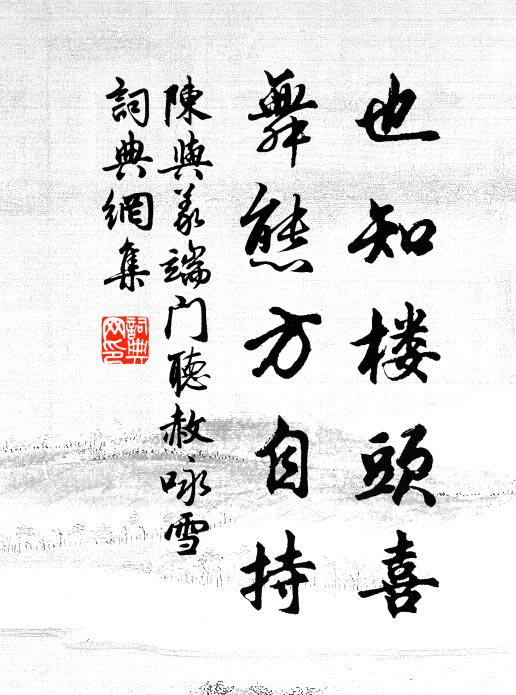 也知楼頭喜
舞態方自持
陳與義端门聽赦咏雪
詞典網集
詞典
网印